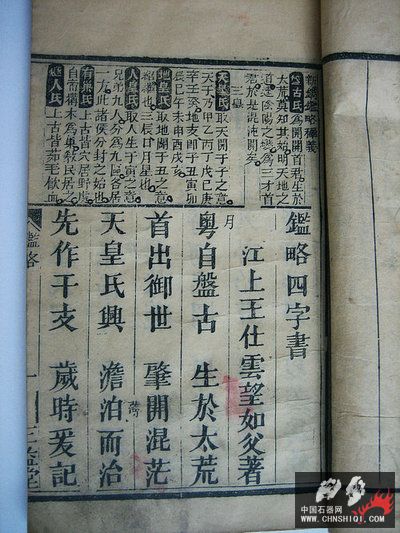 鑑略釋義
盤古氏 為開闢首君生於
太荒莫知其始明天地之
道達陰陽之變為三才首
君於是混沌開矣
三皇
天皇氏 取天開于子之意
天干乃甲乙丙丁戊己庚
辛壬癸地支即子丑寅卯
辰巳午未申酉戌亥
地皇氏 取地開于丑之意
三辰日月星也
人皇氏 取人生于寅之意
兄弟九人分為九區各居
一方此諸侯分封之始也
有巢氏 上古皆穴居野處
構木為巢教民居之
燧人氏 上古皆茹毛飲血
鑑略四字書
江上王仕雲望如父著
月
粵自盤古 生於太荒
首出御世 肇開混茫
天皇氏興 澹泊而治
先作干支 歲時爰記
鑑略 一 三益堂
中国石器网
WWW.CHNSHIQI.COM